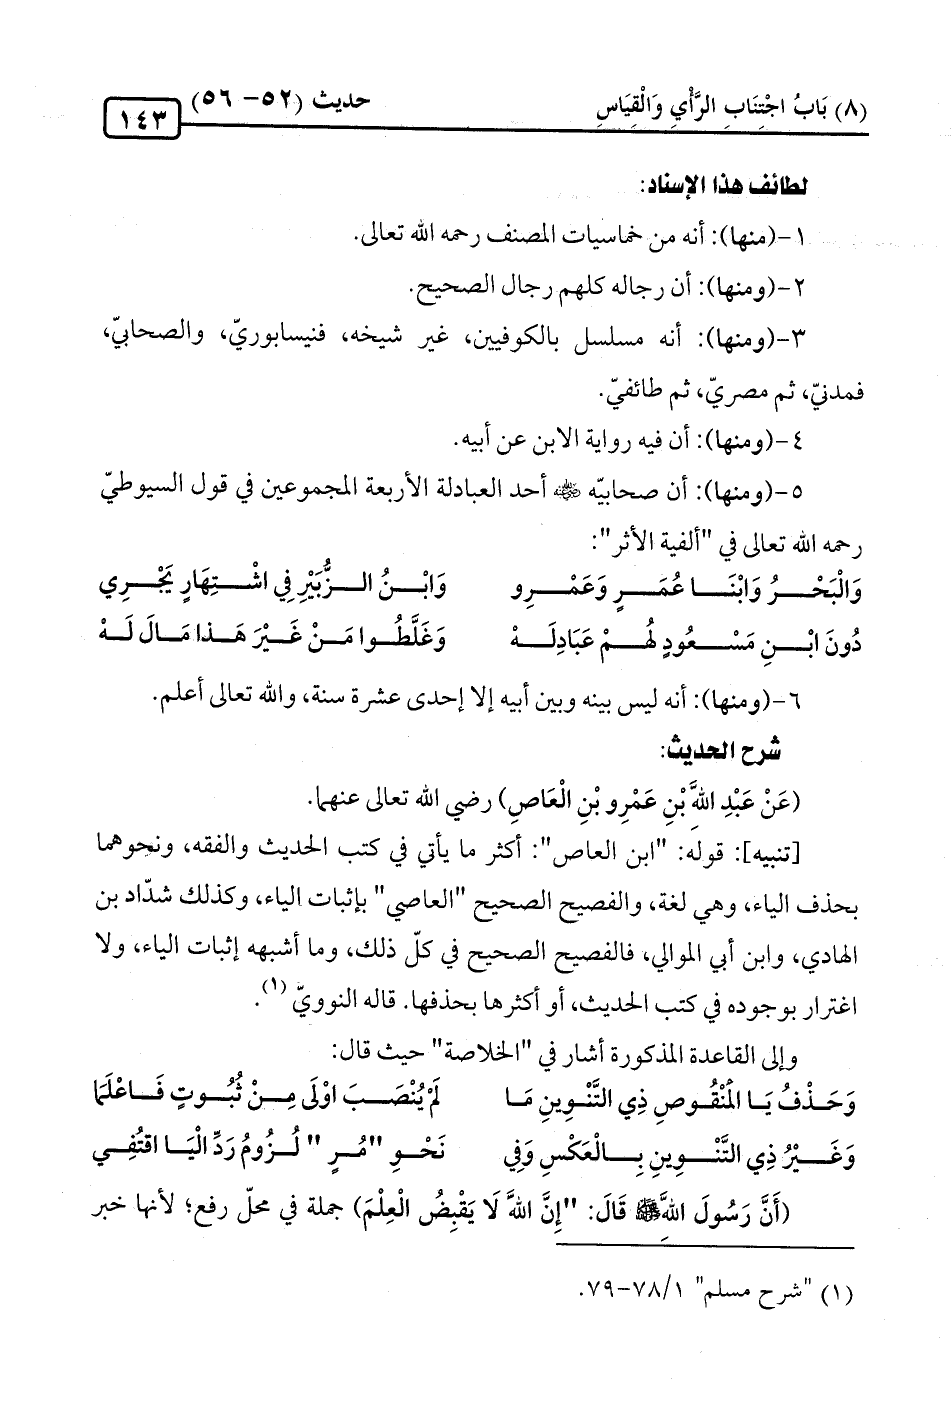 (٨) بَابُ اجْتِنَابِ الرَّأْيِ وَالْقِيَاسِ حديث (٥٢- ٥٦)
١٤٣
لطائف هذا الإسناد:
١-(منها): أنه من خماسيات المصنف رحمه الله تعالى.
٢-(ومنها): أن رجاله كلهم رجال الصحيح.
٣-(ومنها): أنه مسلسل بالكوفيين، غير شيخه، فنيسابوريّ، والصحابيّ،
فمدنيّ، ثم مصريّ، ثم طائفيّ.
٤-(ومنها): أن فيه رواية الابن عن أبيه.
٥-(ومنها): أن صحابيّه ﵁ أحد العبادلة الأربعة المجموعين في قول السيوطيّ
رحمه الله تعالى في "ألفية الأثر":
وَالْبَحْرُ وَابْنَا عُمَرٍ وَعَمْرِو وَابْنُ الزُّبَيْرِ فِي اشْتِهَارٍ يَجْرِي
دُونَ ابْنِ مَسْعُودٍ لَهُمْ عَبَادِلَهْ وَغَلَّطُوا مَنْ غَيْرَ هَذَا مَالَ لَهْ
٦-(ومنها): أنه ليس بينه وبين أبيه إلا إحدى عشرة سنة، والله تعالى أعلم.
شرح الحديث:
(عَنْ عَبْدِ اللَّهِ بْنِ عَمْرِو بْنِ الْعَاصِ) رضي الله تعالى عنهما.
[تنبيه]: قوله: "ابن العاص": أكثر ما يأتي في كتب الحديث والفقه، ونحوهما
بحذف الياء، وهي لغة، والفصيح الصحيح "العاصي" بإثبات الياء، وكذلك شدّاد بن
الهادي، وابن أبي الموالي، فالفصيح الصحيح في كلّ ذلك، وما أشبهه إثبات الياء، ولا
اغترار بوجوده في كتب الحديث، أو أكثرها بحذفها. قاله النوويّ(١).
وإلى القاعدة المذكورة أشار في "الخلاصة" حيث قال:
وَحَذْفُ يَا الْمَنْقُوصِ ذِي التَّنْوِينِ مَا لَمْ يُنْصَبَ اوْلَى مِنْ ثُبُوتٍ فَاعْلَمَا
وَغَيْرُ ذِي التَّنْوِينِ بِالْعَكْسِ وَفِي نَحْوِ "مُرٍ" لُزُومُ رَدِّ الْيَا اقْتُفِي
(أَنَّ رَسُولَ اللَّهِ ﷺ قَالَ: "إِنَّ اللَّهَ لَا يَقْبِضُ الْعِلْمَ) جملة في محلّ رفع؛ لأنها خبر
(١) "شرح مسلم" ١/ ٧٨-٧٩.